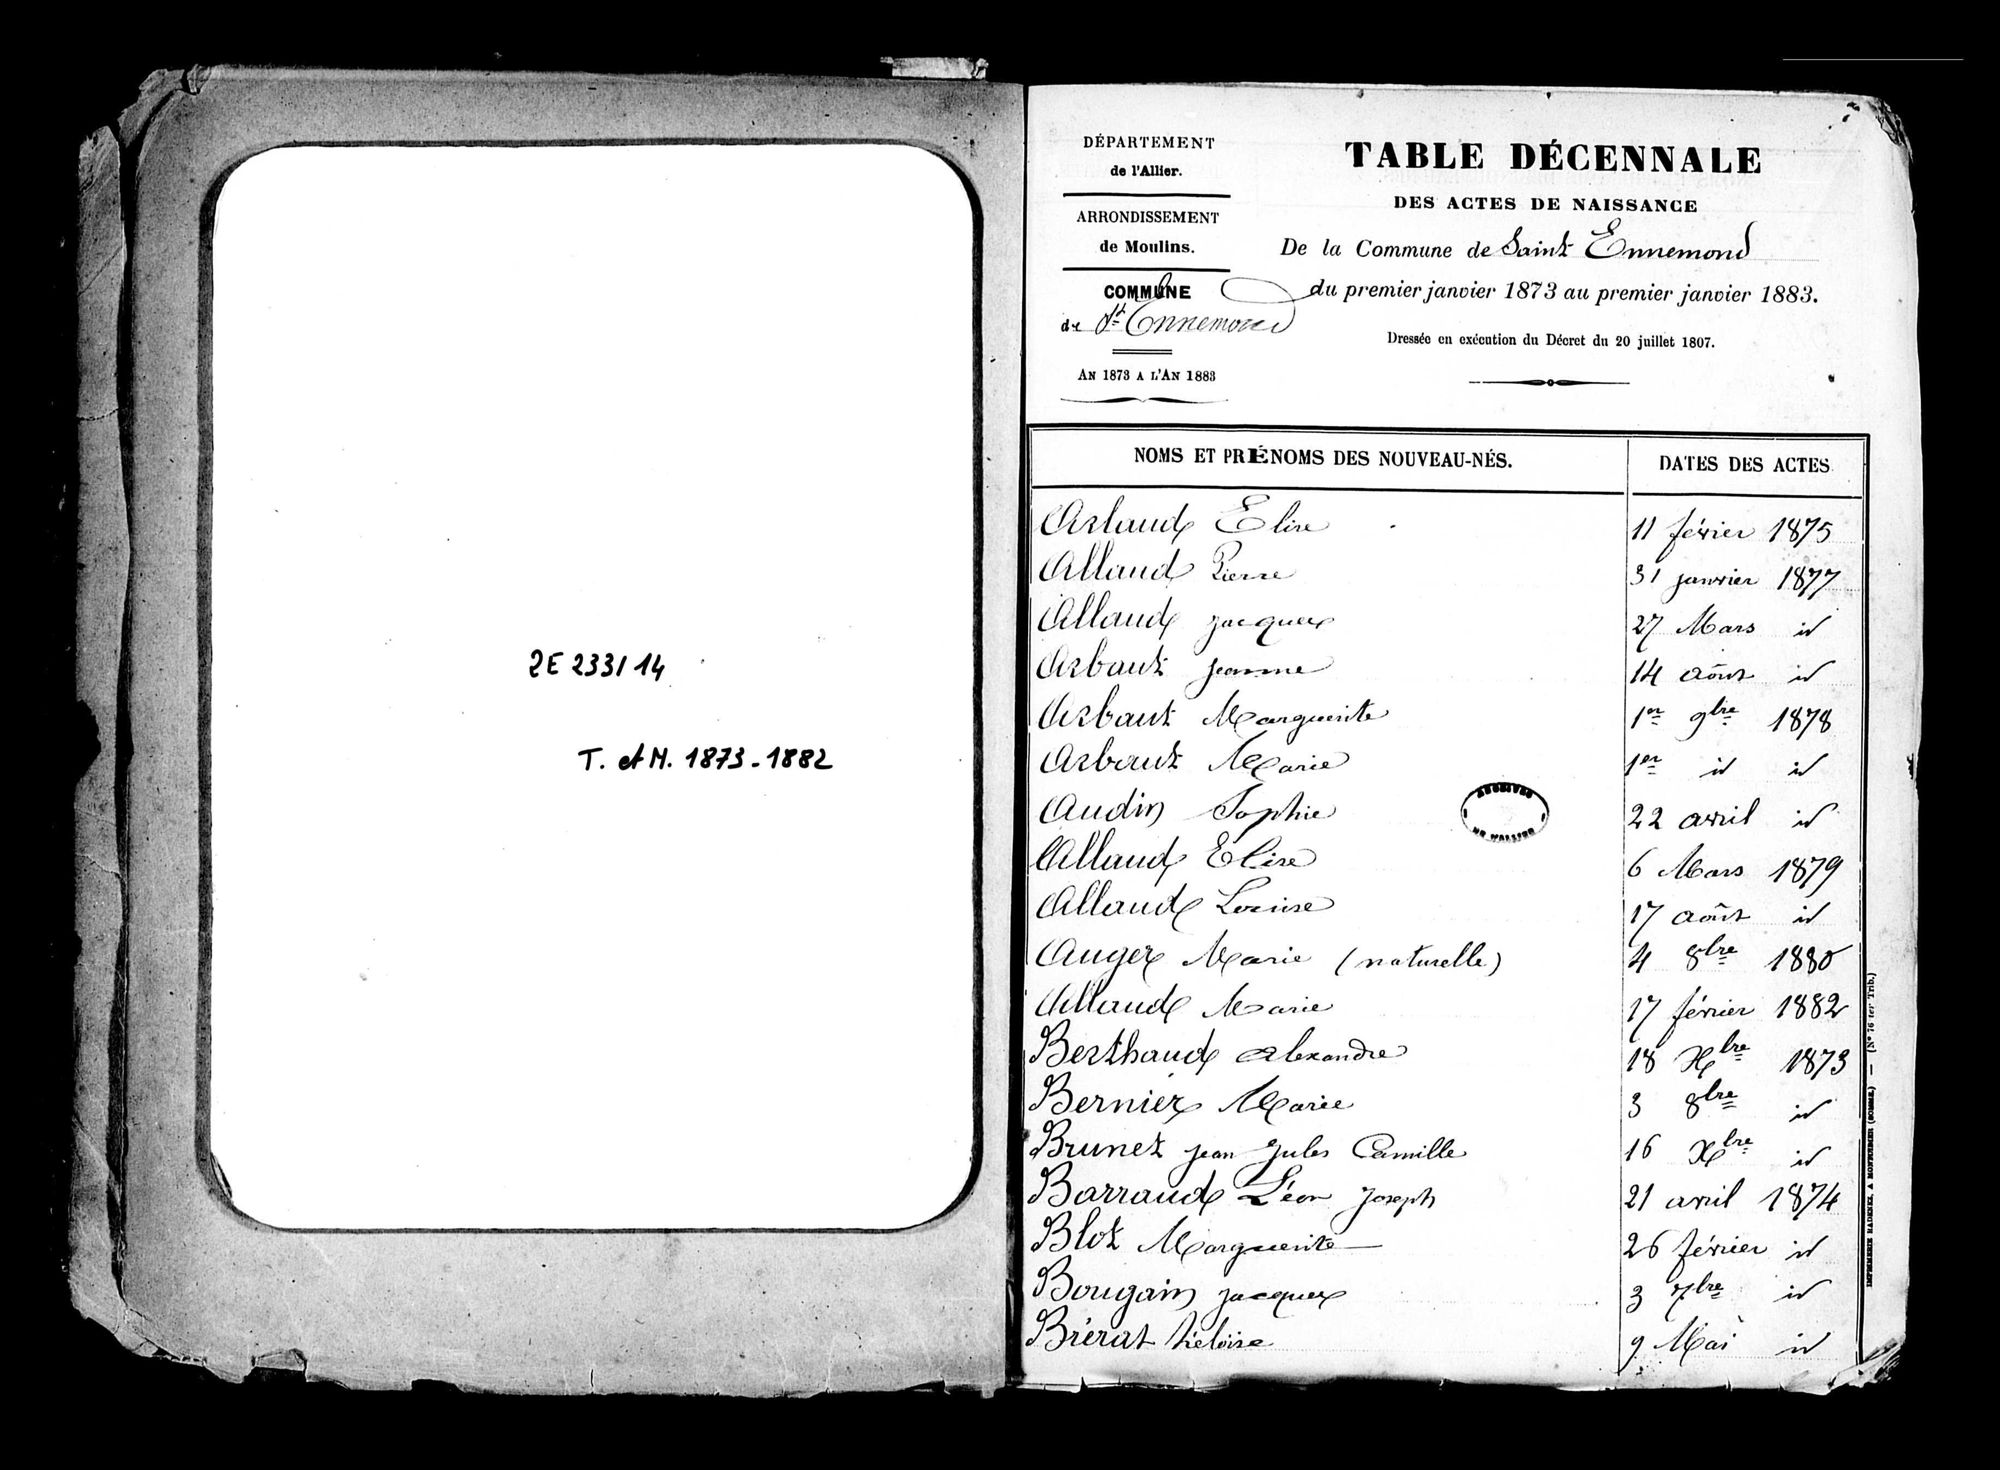 2E 233/14
T. et M. 1873-1882
DÉPARTEMENT
de l'Allier.
ARRONDISSEMENT
de Moulins.
COMMUNE
de St Ennemond
AN 1873 A L'AN 1883
TABLE DÉCENNALE
DES ACTES DE NAISSANCE
De la Commune de Saint Ennemond
du premier janvier 1873 au premier janvier 1883.
Dressée en exécution du Décret du 20 juillet 1807.
NOMS ET PRÉNOMS DES NOUVEAU-NÉS. DATES DES ACTES
Arlaud Elise 11 février 1875
Allaud Pierre 31 janvier 1877
Allaud jacques 27 Mars id
Arbaut jeanne 14 août id
Arbaut Marguerite 1er 9bre 1878
Arbaut Marie 1er id id
Audin Sophie 22 avril id
Allaud Elise 6 Mars 1879
Allaud Louise 17 août id
Auger Marie (naturelle) 4 8bre 1880
Allaud Marie 17 février 1882
Berthaud alexandre 18 Xbre 1873
Bernier Marie 3 8bre id
Brunet jean jules Camille 16 Xbre id
Barraud Léon joseph 21 avril 1874
Blot Marguerite 26 février id
Bougain jacques 3 7bre id
Brérat héloise 9 Mai id
ARCHIVES
DE L'ALLIER
IMPRIMERIE RADENEZ, A MONTDIDIER (SOMME.) — (N° 76 ter Trib.)